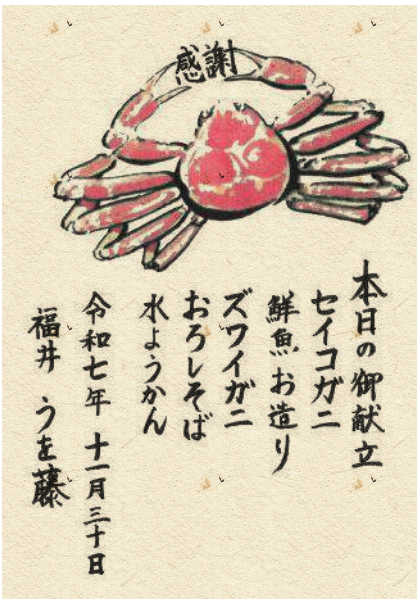 感謝
本日の御献立
セイコガニ
鮮魚お造り
ズワイガニ
おろしそば
水ようかん
令和七年 十一月三十日
福井 うを藤